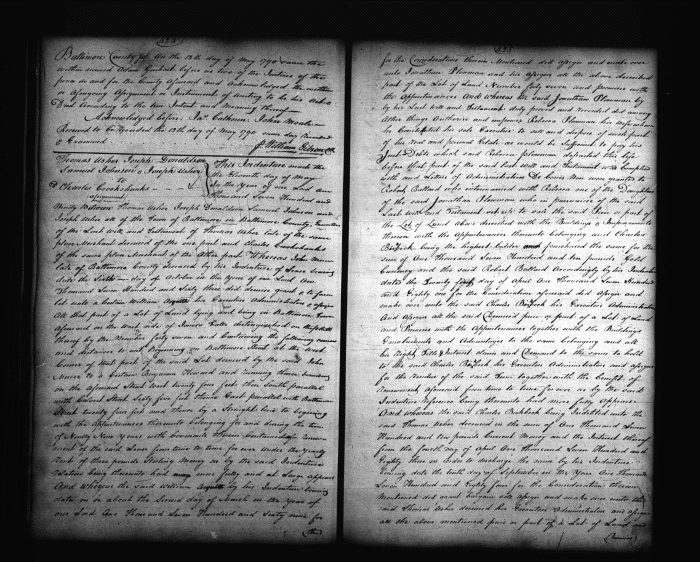 Baltimore County ss. On the 13th day of May 1790 came the
within named Adam Gantz before us two of the Justices of the
peace in and for the County aforesaid and Acknowledged the within
or foregoing Assignment or Instrument of writing to be his Act &
Deed According to the true Intent and Meaning thereof
Acknowledged before Jas. Calhoun John Moale
Received to be Recorded the 13th day of May 1790 same day Recorded
& Examined William Gibson Clk
Thomas Usher Joseph Donaldson
Samuel Johnson & Joseph Usher
to
Charles Crookshanks
assignment
This Indenture made the
the Eleventh day of May
In the Year of our Lord One
Thousand Seven Hundred and
Ninety Between Thomas Usher Joseph Donaldson Samuel Johnson and
Joseph Usher all of the Town of Baltimore in Baltimore County Executors
of the Last Will and Testament of Thomas Usher late of the same
place Merchant deceased of the one part and Charles Crookshanks
of the same place Merchant of the Other part Whereas John Moore
late of Baltimore County deceased by his Indenture of Lease bearing
date the Sixth day of October in the Year of our Lord One
Thousand Seven Hundred and Sixty three did demise grant & to farm
let unto a certain William his Executors Administrators & assigns
All that part of a Lot of Land lying and being in Baltimore Town
Aforesaid on the West side of distinguished on the plat
thereof by the Number forty seven and Containing the following courses
and distances to wit Beginning Baltimore Street at the West
Corner of that part of the said Lot demised by the said John
Moore to a certain Benjamin Howard and running thence bounding
on the aforesaid Street West twenty four feet then South parallel
with Calvert Street sixty five feet thence East parallel with Baltimore
Street twenty four feet and thence by a Straight line to beginning
with the Appurtenances thereunto belonging for and during the term
of Ninety Nine Years with Covenants therein Contained
of the said Lease from time to time for ever Under the yearly
Rent of three pounds Sterling Money as by the said Indenture
relation being thereunto had may more fully and at Large appear
And Whereas the said William by his Indenture bearing
date on or about the Second day of March in the Year of
our Lord One Thousand Seven Hundred and Sixty nine for
(the)
for the Considerations therein Mentioned did assign and make over
unto Jonathan Plowman and his Assigns all the above described
part of the Lot of Land Number forty seven and premises with
the Appurtenances And Whereas the said Jonathan Plowman by
by his Last Will and Testament duly proved and recorded did among
other things Authorize and impower Rebecca Plowman his
be Constituted his sole Executrix to sell and dispose of such part
of his real and personal Estate as would be sufficient to pay his
Just Debts which said Rebecca plowman departed this life
before that part of the said Last will and Testament was Compleat
and with Letters of Administration De Bonis Non were granted to
Robert Ballard who intermarried with Rebecca one of the Daughters
of the said Jonathan Plowman who in pursuance of the said
Last Will and Testament sett to sale the said Piece or part of
the Lot of Land above described with the Buildings & Improvements
thereon with the Appurtenances thereunto belonging and Charles
being the highest bidder purchased the same for the
sum of One Thousand Seven Hundred and ten pounds Gold
Currency and the said Robert Ballard Accordingly by his Indenture
dated the Twenty day of April One Thousand Seven Hundred
and Eighty one for the Consideration aforesaid did Assign and
make over unto the said Charles his Executors Administrators
And Assigns all the said demised piece or part of a Lot of Land
and Premises with the Appurtenances together with the Buildings
Emoluments and Advantages to the same belonging and all
his Right Title & Interest claim and Demand to the same to hold
to the said Charles his Executors Administrators and Assigns
for the residue of the said Term together with the benefit of
Renewment aforesaid from time to time for ever as by the said
Indenture reference being thereunto had more fully appears
And Whereas the said Charles being Indebted unto the
said Thomas Usher deceased in the sum of One Thousand Seven
Hundred and ten pounds Current Money and the Interest thereof
from the fourth day of April One Thousand Seven Hundred and
Eighty three in Order to discharge the same by his Indenture
bearing date the tenth day of September in the Year One Thousand
Seven Hundred and Eighty four for the Consideration therein
Mentioned did grant bargain sell assign and make over unto the
said Thomas Usher deceased his Executors Administrators and Assigns
all the above mentioned piece or part of a Lot of Land and